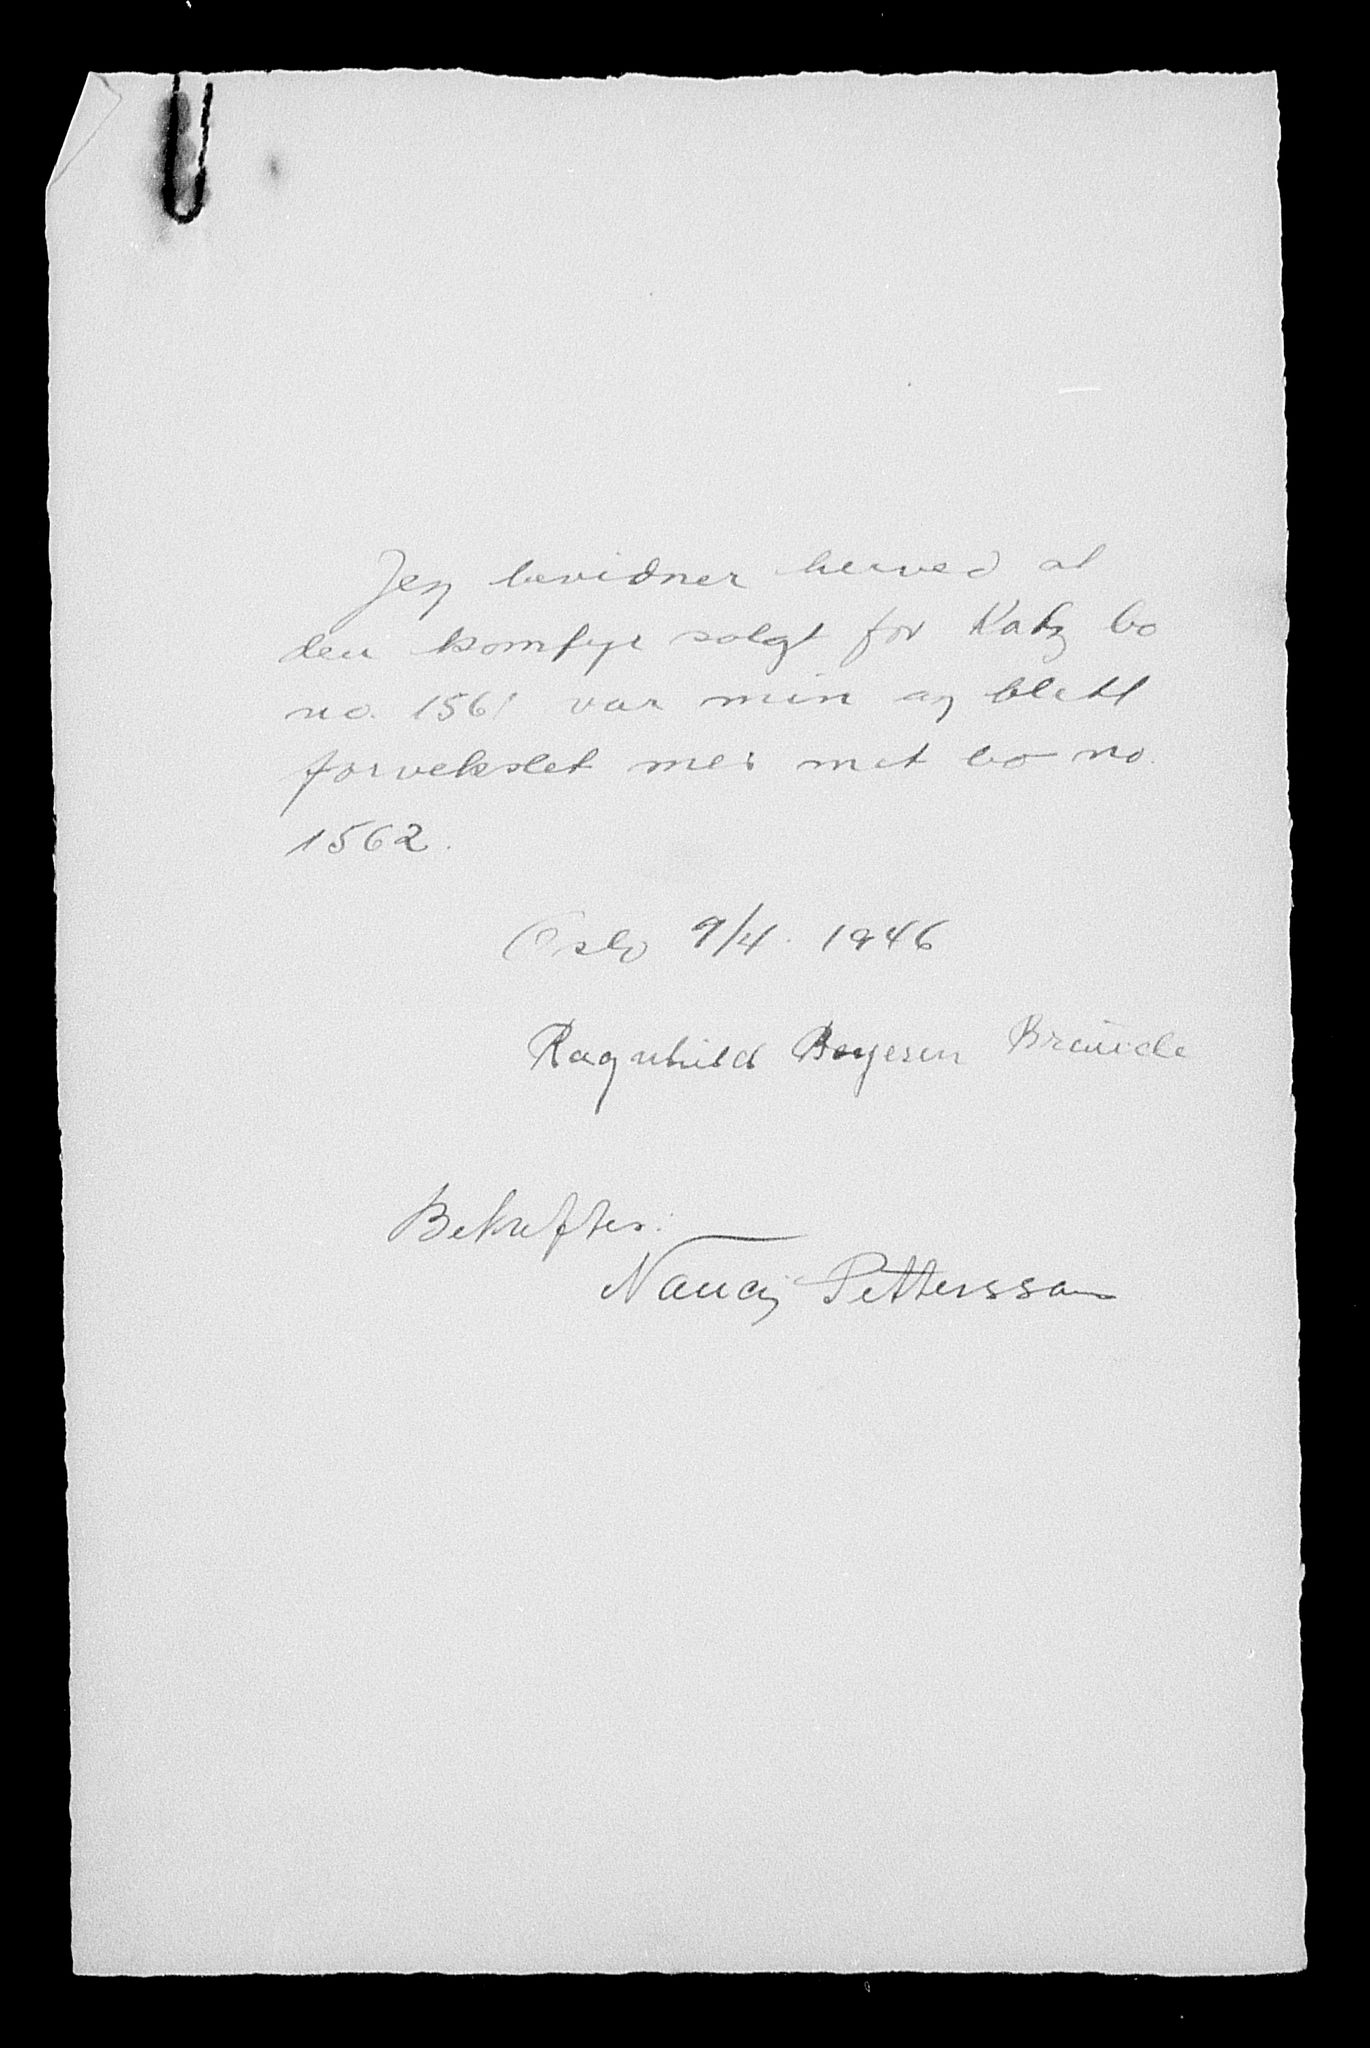 Jeg bevidner herved at
den komfyr solgt for Katz bo
no. 1561 var min og blett
forvekslet med mit bo no.
1562.
Oslo 9/4. 1946
Ragnhild Boyesen
Bekreftes:
Nancy Pettersson